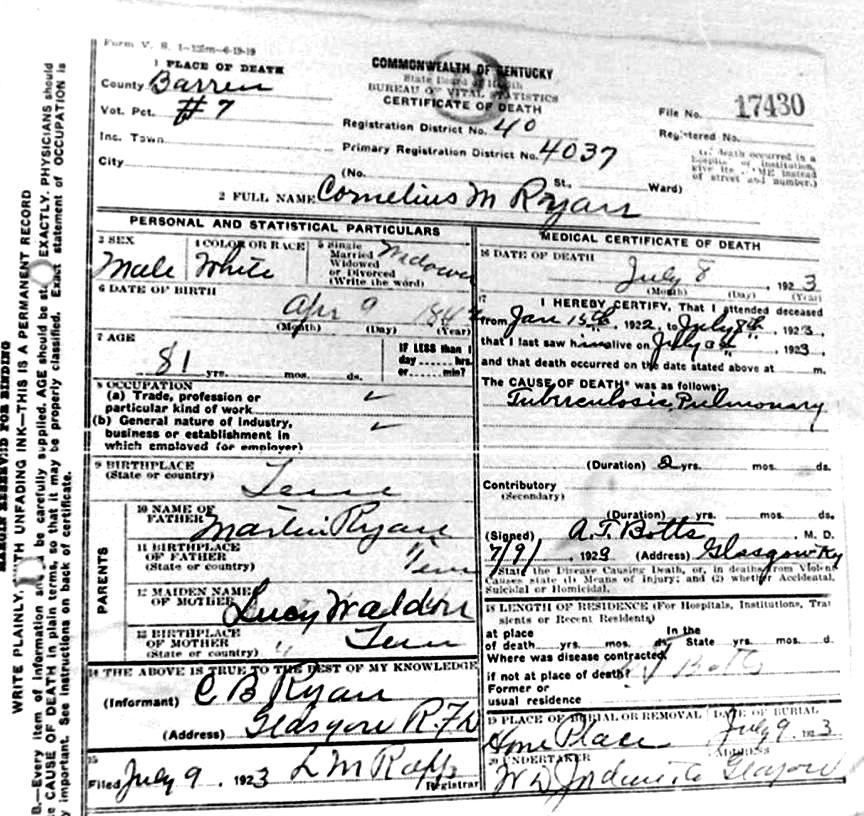 Form V. S. 1-125m-6-19-19
1 PLACE OF DEATH
County Barren
Vot. Pct. #7
Inc. Town
City
COMMONWEALTH OF KENTUCKY
State Board of Health
BUREAU OF VITAL STATISTICS
CERTIFICATE OF DEATH
Registration District No. 40
Primary Registration District No. 4037
(No. St., Ward)
File No. 17430
Registered No.
death occurred in a
hospital or institution,
give its NAME instead
of street and number.)
2 FULL NAME Cornelius M Ryan
PERSONAL AND STATISTICAL PARTICULARS
3 SEX
Male
4 COLOR OR RACE
White
5 Single
Married
Widowed
or Divorced
(Write the word)
Widower
6 DATE OF BIRTH
Apr 9 1842
(Month) (Day) (Year)
7 AGE
81 yrs. mos. ds.
IF LESS than 1
day hrs.
or min?
8 OCCUPATION
(a) Trade, profession or
particular kind of work
(b) General nature of industry,
business or establishment in
which employed (or employer)
9 BIRTHPLACE
(State or country)
Tenn
PARENTS
10 NAME OF
FATHER Martin Ryan
11 BIRTHPLACE
OF FATHER
(State or country) " Tenn
12 MAIDEN NAME
OF MOTHER Lucy Waldon
13 BIRTHPLACE
OF MOTHER
(State or country) " Tenn
14 THE ABOVE IS TRUE TO THE BEST OF MY KNOWLEDGE
(Informant) C B Ryan
(Address) Glasgow R.F.D
15
Filed July 9, 1923 L M Rapp
Registrar
MEDICAL CERTIFICATE OF DEATH
16 DATE OF DEATH
July 8, 1923
(Month) (Day) (Year)
17 I HEREBY CERTIFY, That I attended deceased
from Jan 15th, 1922, to July 8th, 1923,
that I last saw him alive on July 8th, 1923,
and that death occurred on the date stated above at m.
The CAUSE OF DEATH* was as follows:
Tuberculosis, Pulmonary
(Duration) 2 yrs. mos. ds.
Contributory
(Secondary)
(Duration) yrs. mos. ds.
(Signed) A.T. Botts, M. D.
7/9/, 1923 (Address) Glasgow Ky
State the Disease Causing Death, or, in deaths from Violent
Causes state (1) Means of Injury; and (2) whether Accidental,
Suicidal or Homicidal.
18 LENGTH OF RESIDENCE (For Hospitals, Institutions, Tran
sients or Recent Residents)
at place In the
of death yrs. mos. State yrs. mos. d.
Where was disease contracted,
if not at place of death? Botts
Former or
usual residence
19 PLACE OF BURIAL OR REMOVAL
Home Place
DATE OF BURIAL
July 9, 1923
20 UNDERTAKER
ADDRESS
W D Glasgow
MARGIN RESERVED FOR BINDING
WRITE PLAINLY, WITH UNFADING INK—THIS IS A PERMANENT RECORD
B.—Every item of information should be carefully supplied. AGE should be stated EXACTLY. PHYSICIANS should
CAUSE OF DEATH in plain terms, so that it may be properly classified. Exact statement of OCCUPATION is
important. See instructions on back of certificate.